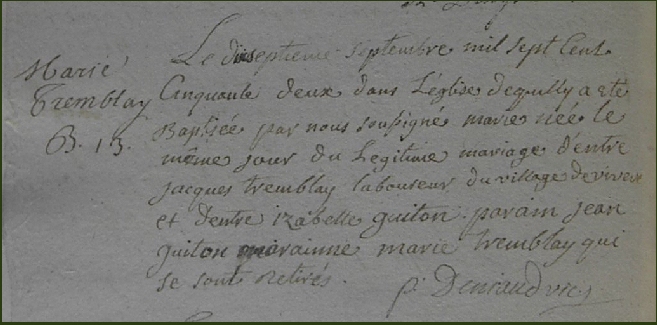 Marie
Tremblay
B. 13.
Le dixseptieme septembre mil sept Cent
Cinquante deux dans L'église deguilly a eté
Baptisée par nous soussigné marie née le
même jour du Legitime mariage d'entre
jacques tremblay laboureur du village de
et d'entre izabelle guiton. parain jean
guiton marainne marie tremblay qui
se sont retirés.